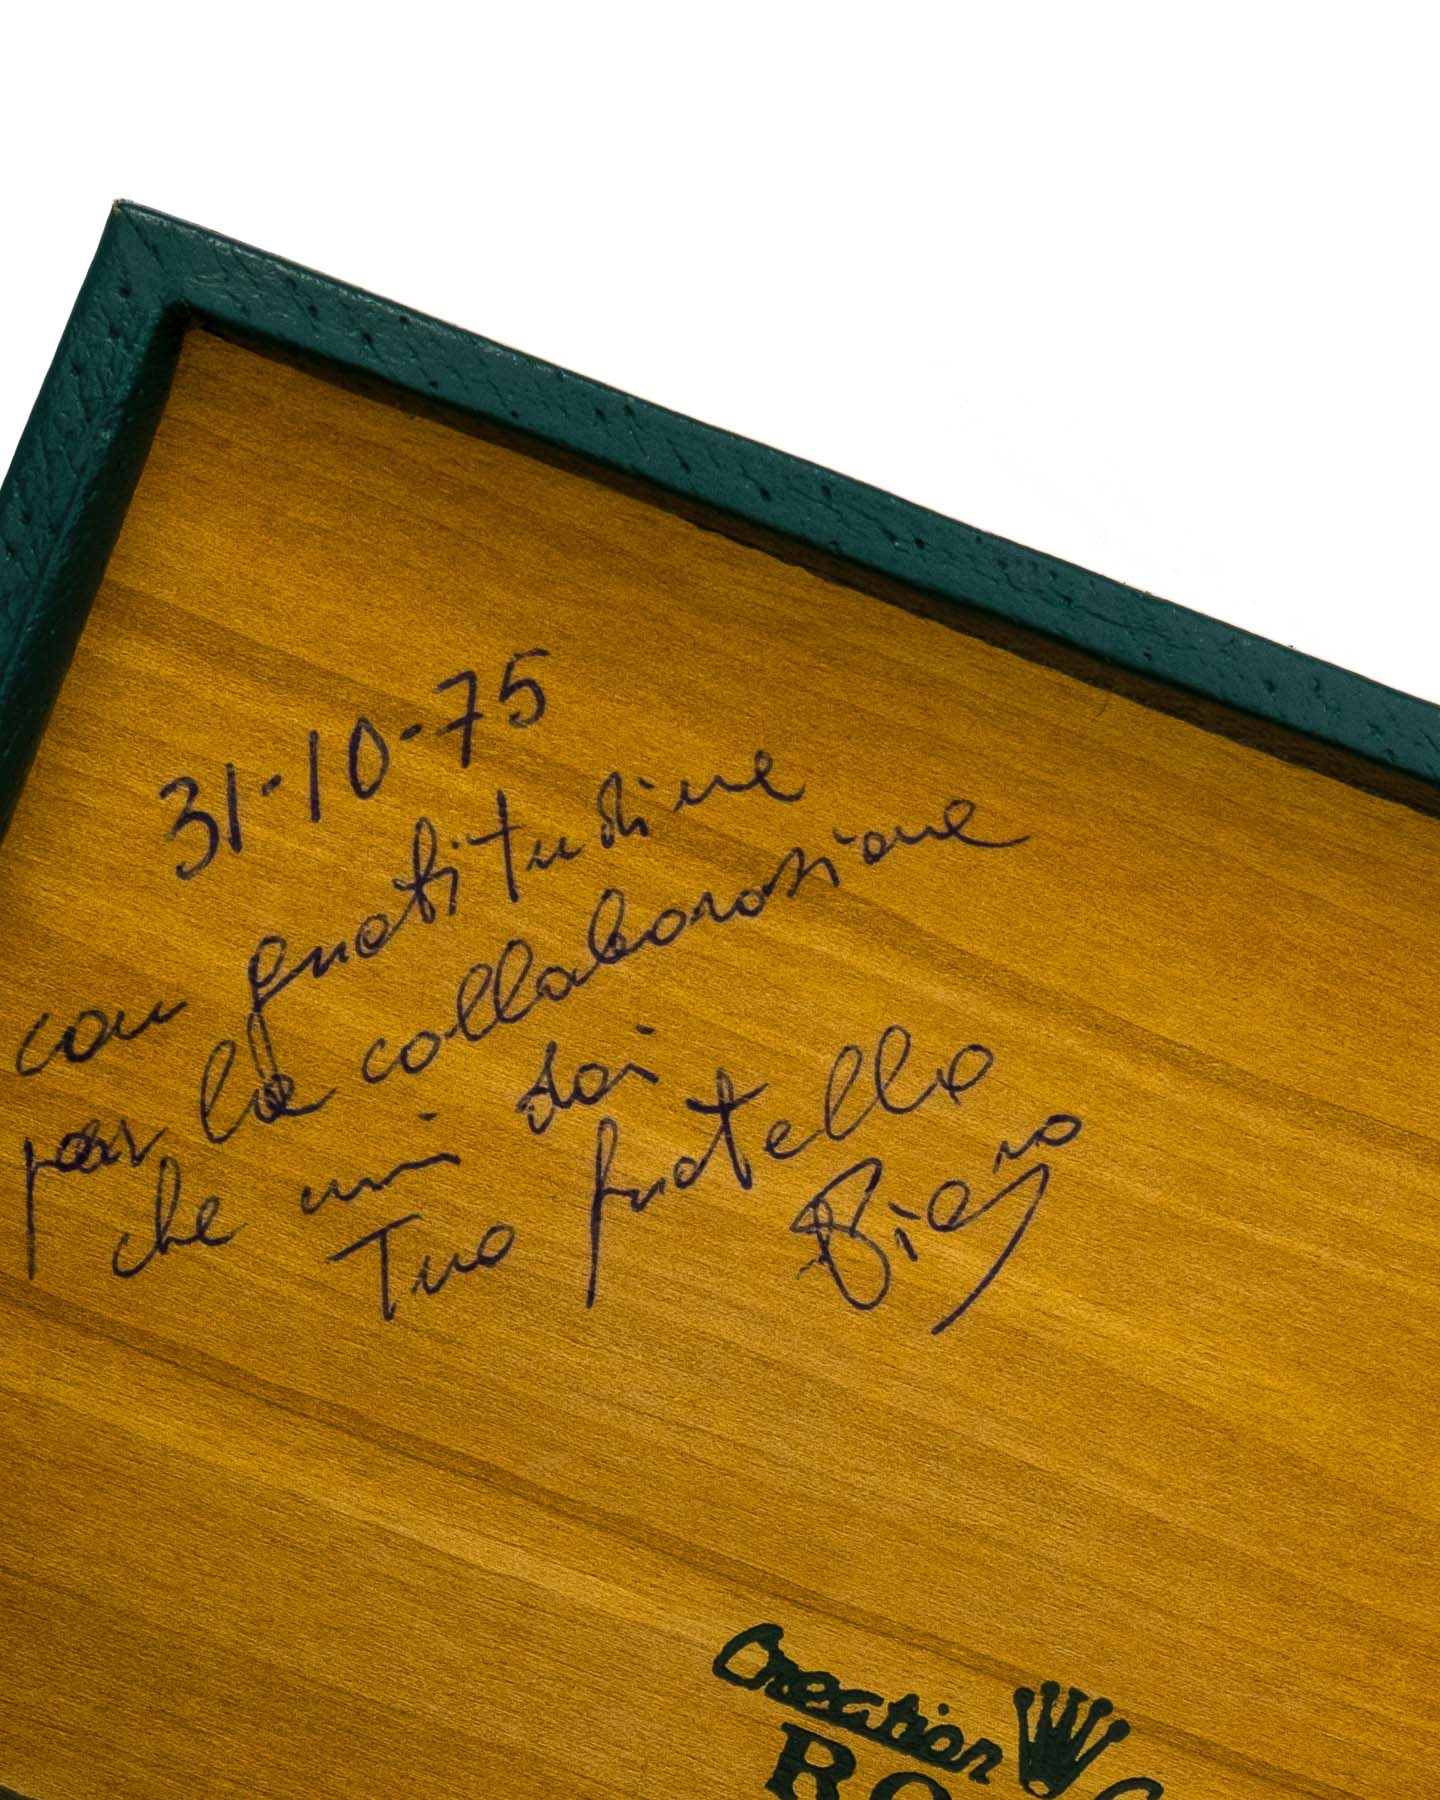 31-10-75
con gratitudine
per la collaborazione
che mi dai
Tuo fratello
Creation
RO